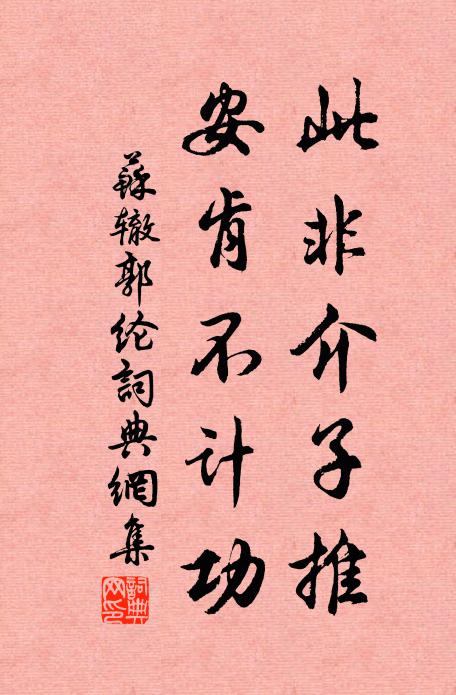 此非介子推
安肯不计功
蘇辙郭纶詞典網集
詞典网印